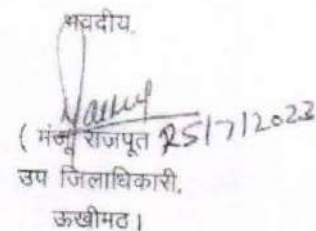 भवदीय,
( मंजू राजपूत 25/7/2023
उप जिलाधिकारी,
ऊखीमठ।